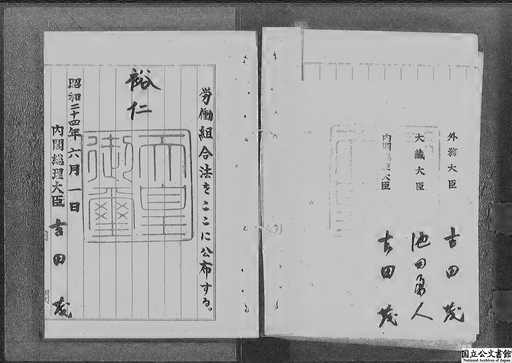 労働組合法をここに公布する。
裕仁
天皇御璽
昭和二十四年六月一日
内閣総理大臣 吉田茂
外務大臣 吉田茂
大蔵大臣 池田勇人
内閣総理大臣 吉田茂
国立公文書館
National Archives of Japan